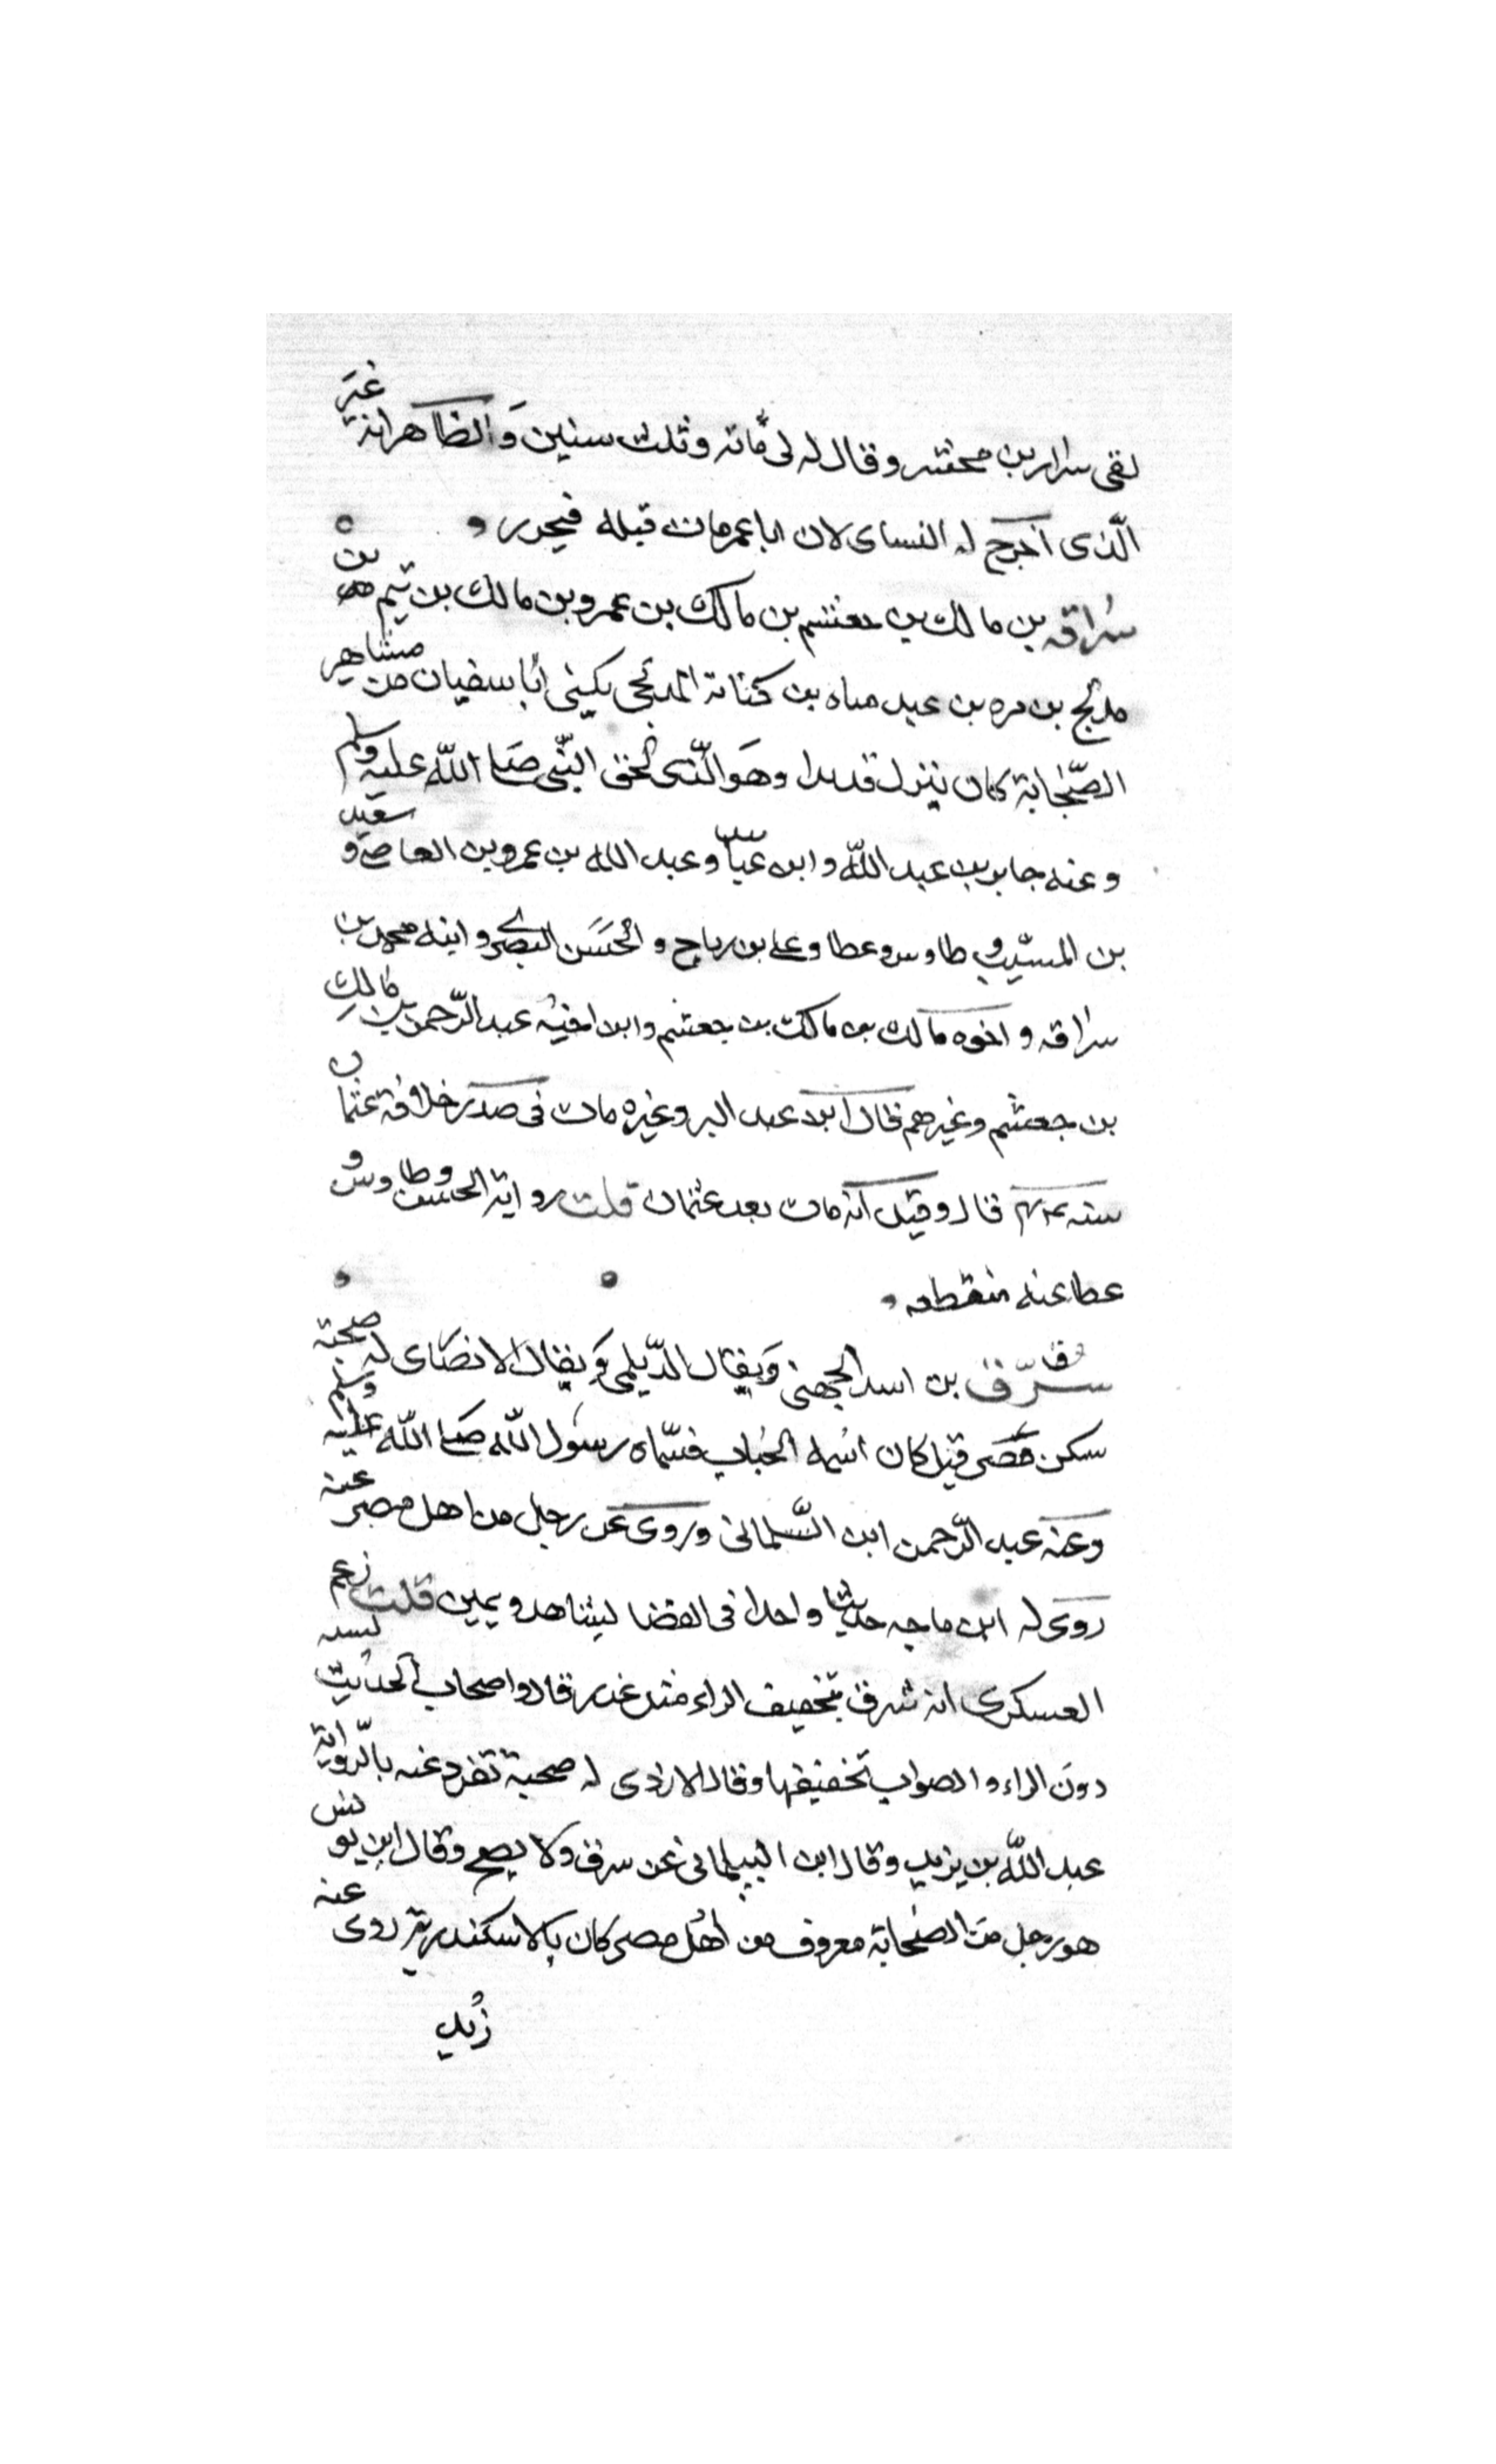 لقى سرار بن محشر وقال له لى مائة وثلث سنين والظاهر انه غير
الّذى اخرج له النساى لان ابا عمر مات قبله فيحرر
سراقه بن مالك بن جعشم بن مالك بن عمرو بن مالك بن تيم بن
مدلج بن مره بن عبد مناه بن كنانة المدلجى يكنى أبا سفيان من مشاهير
الصّحابة كان ينزل قديدا وهو الّذى لحق النّبى صلى اللّه عليه وسلم
وعنه جابر بن عبد اللّه وابن عباس وعبد الله بن عمرو بن العاص وسعيد
بن المسيّب وطاوس وعطا وعلى بن رباح والحسن البصرى وابنه محمد بن
سراقه واخوه مالك بن مالك بن جعشم وابن اخيه عبد الرّحمن بن مالك
بن جعشم وغيرهم قال ابن عبد البر وغيره مات فى صدر خلافة عثمان
سنه ٢٤ قال وقيل انه مات بعد عثمان قلت رواية الحسن وطاوس و
عطا عنه منقطعه
سرّق بن اسد الجهنى ويقال الدّيلمى ويقال الانصارى له صحبة
سكن مصر قيل كان اسمه الحباب فسمّاه رسول اللّه صلى اللّه عليه وسلم
وعنه عبد الرّحمن ابن السلمانى وروى عن رجل من اهل مصر عنه
روى له ابن ماجه حديثا واحدا فى القضا بشاهد ويمين قلت زعم
العسكرى انه سرق بتخفيف الراء مثل غدر قال واصحاب الحديث يشد
دون الراء والصواب تخفيفها وقال الازدى له صحبة تفرد عنه بالرّواية
عبد اللّه بن يزيد وقال ابن البيلمانى عن سرق ولا يصح وقال ابن يونس
هو رجل من الصحابة معروف من اهل مصر كان بالاسكندرية روى عنه
زيد